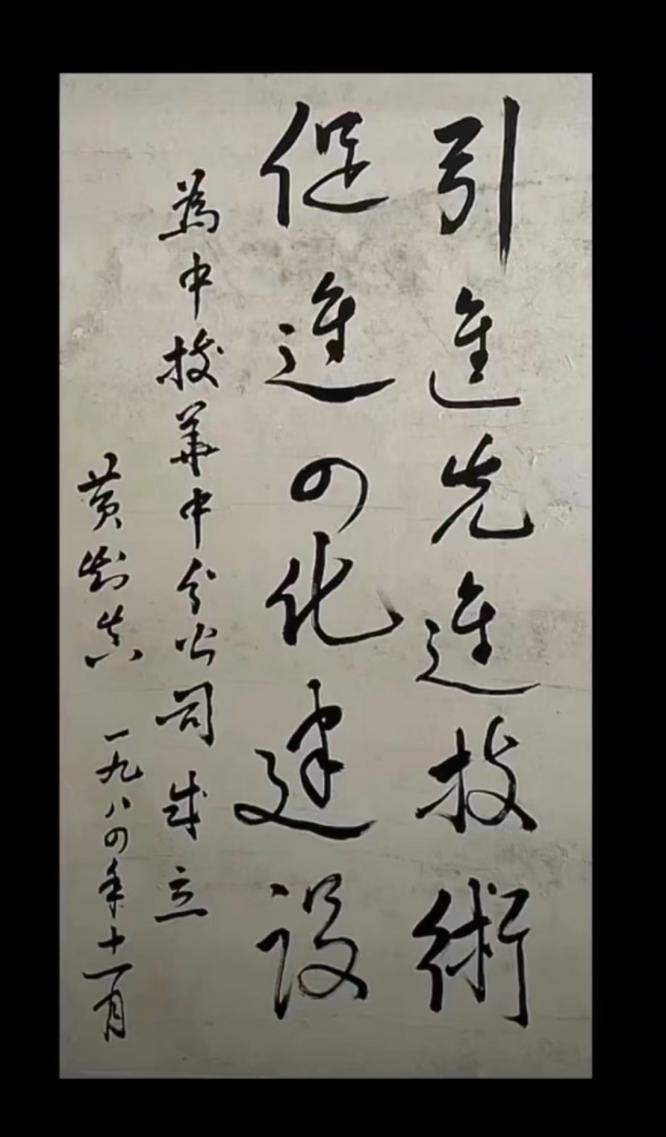 引進先進技術
促進四化建設
為中技華中分公司成立
黄知真 一九八四年十一月